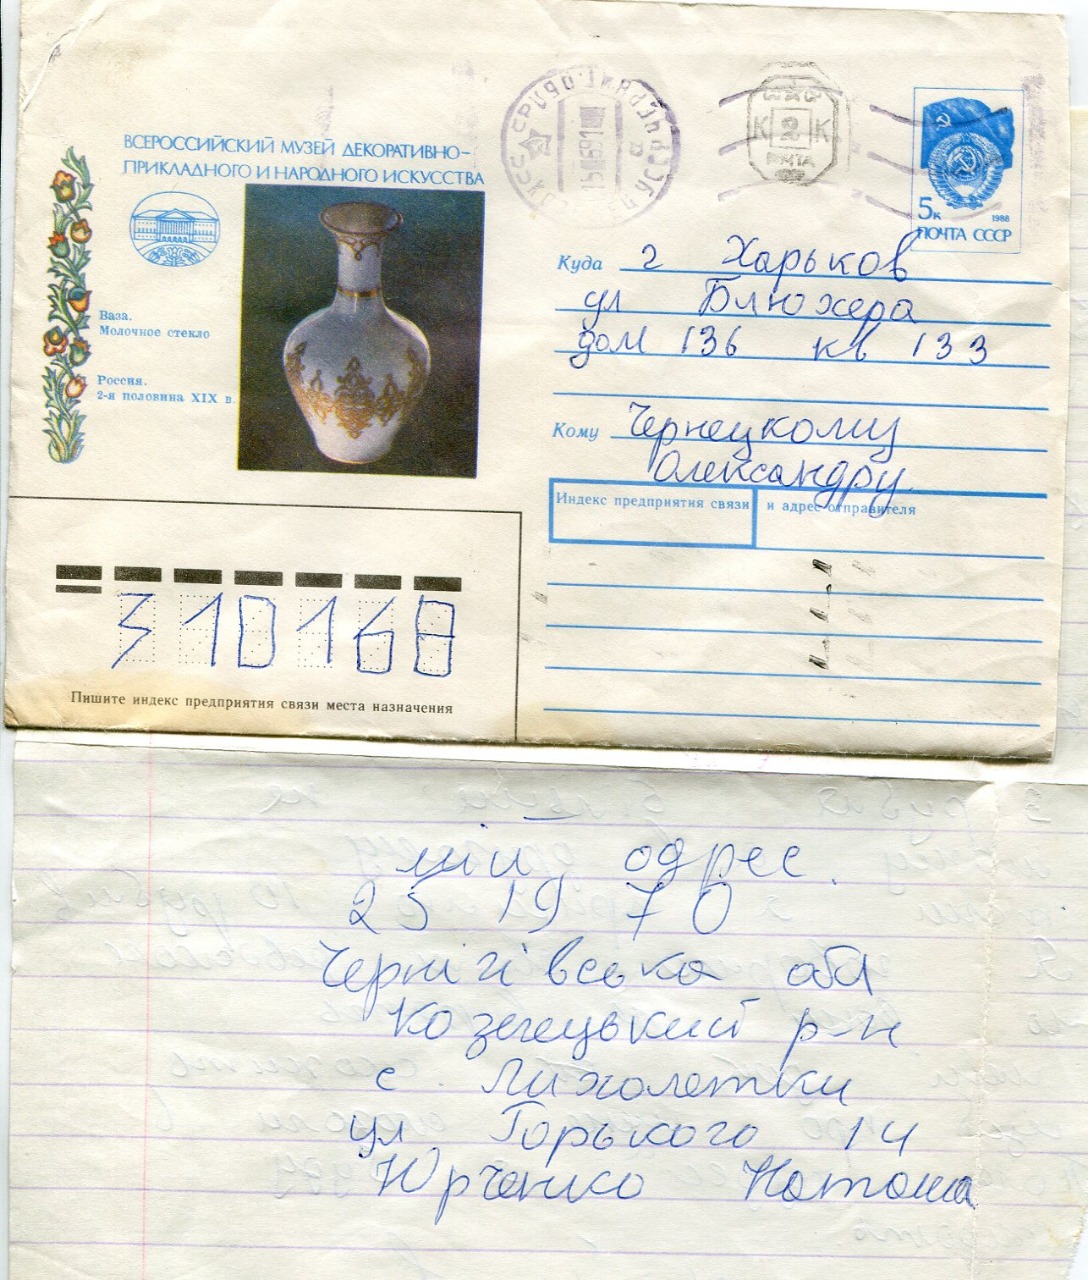 ВСЕРОССИЙСКИЙ МУЗЕЙ ДЕКОРАТИВНО-
ПРИКЛАДНОГО И НАРОДНОГО ИСКУССТВА
Ваза.
Молочное стекло
Россия.
2-я половина XIX в.
К 2 К
ПОЧТА
5к
1988
ПОЧТА СССР
Куда г Харьков
ул Блюхера
дом 136 кв 133
Кому Чернецкому
Олександру
Индекс предприятия связи и адрес отправителя
310168
Пишите индекс предприятия связи места назначения
мій одрес.
251970
Чернігівська обл
Козелецький р-н
с Лихолетки
ул Горького 14
Юрченко Наташа